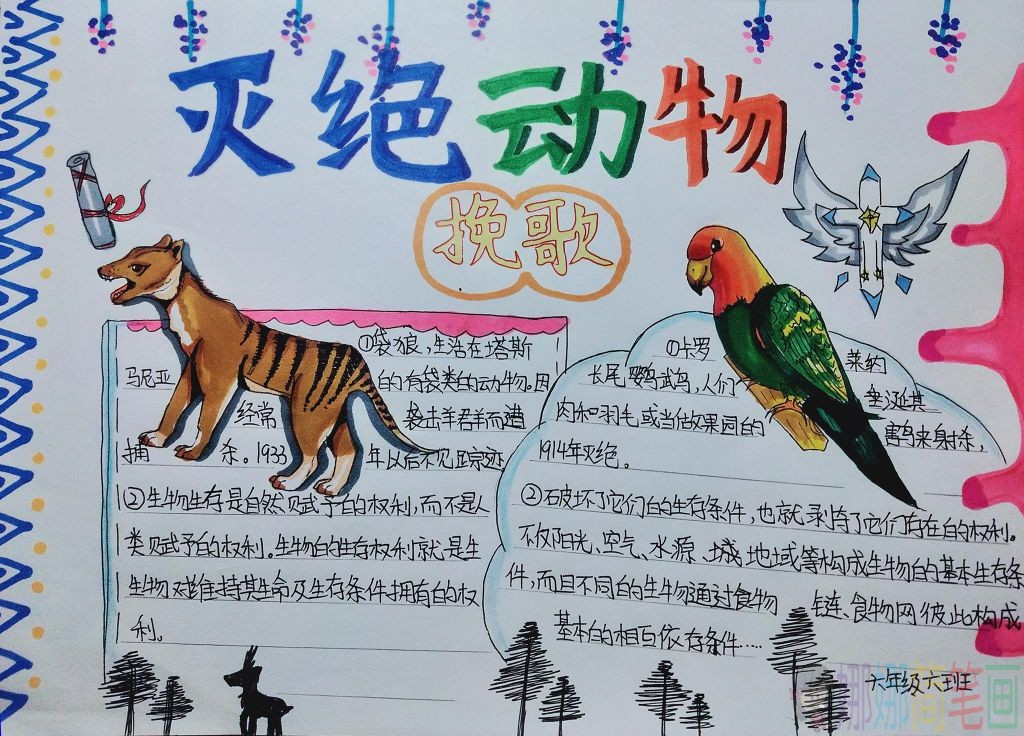 灭绝动物
挽歌
①袋狼,生活在塔斯
马尼亚 的有袋类的动物。因
经常 袭击羊群而遭
捕 杀。1933 年以后不见踪迹
②生物生存是自然赋予的权利,而不是人
类赋予的权利。生物的生存权利就是生
生物对维持其生命及生存条件拥有的权
利。
①卡罗 莱纳
长尾鹦鹉,人们 垂涎其
肉和羽毛或当做果园的 害鸟来射杀,
1914年灭绝。
②破坏了它们的生存条件,也就剥夺了它们存在的权利。
不仅阳光、空气、水源、城地域等构成生物的基本生存条
件,而且不同的生物通过食物 链、食物网彼此构成
基本的相互依存条件……
六年级六班
娜娜简笔画